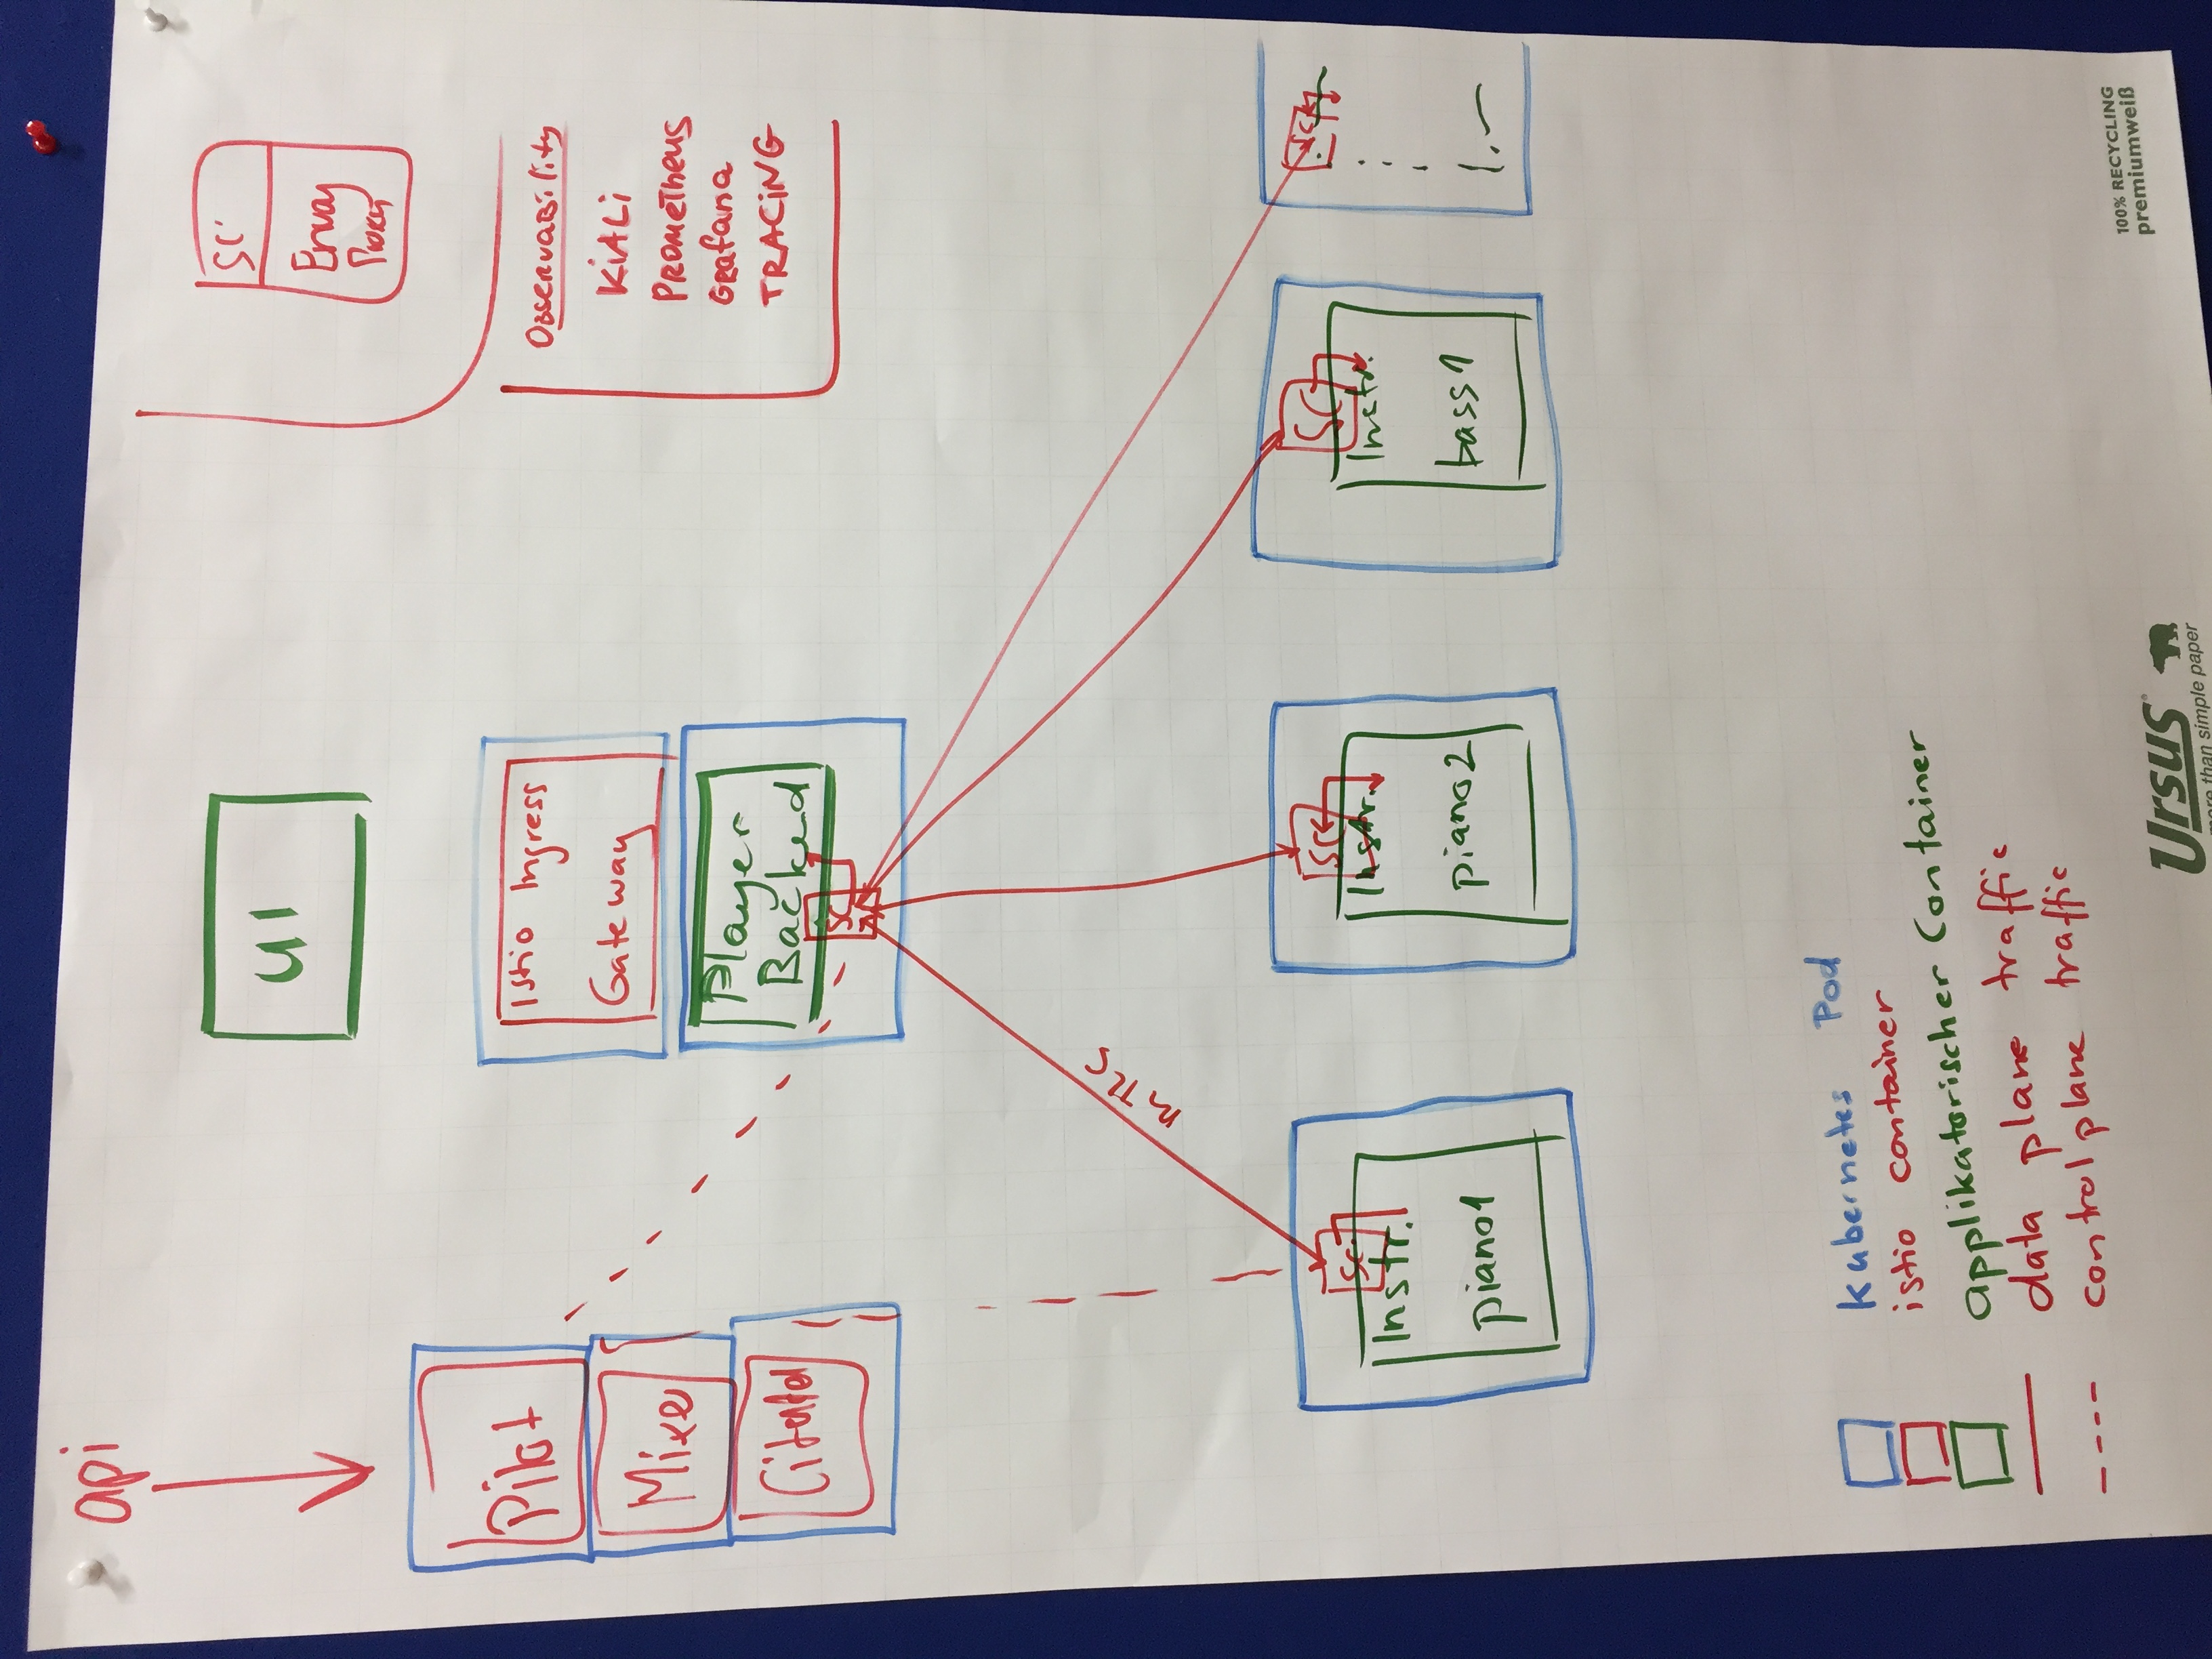 api
UI
SC
Envoy
Proxy
Pilot
Mixer
Citadel
Istio Ingress
Gateway
Player
Backend
SC
Observability
KiALi
PROMETheus
GRafana
TRACiNG
mTLS
SC
Instr.
piano1
SC
Instr.
piano2
SC
Instr.
bass1
SC
Kubernetes Pod
istio container
applikatorischer Container
data plane traffic
control plane traffic
100% RECYCLING
premiumweiß
Ursus
more than simple paper